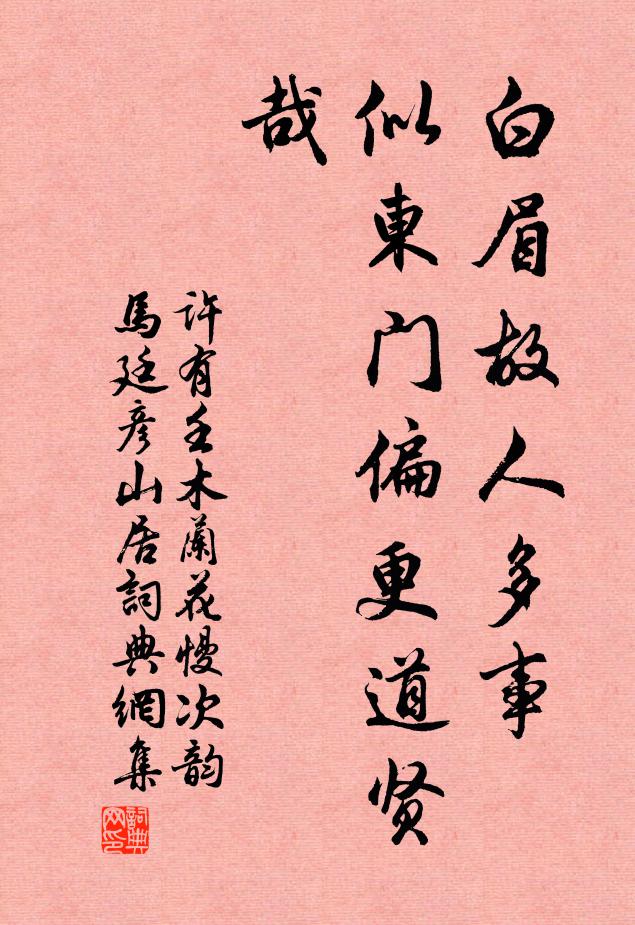 白眉故人多事
似東門偏更道贤
哉
許有壬木蘭花慢次韵
馬廷彦山居詞典網集
詞典网印